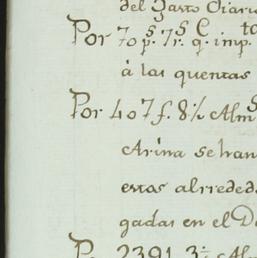 del Gasto Diario
Por 70 p.s 7 r.s q. imp.to
á las quentas
Por 407 f. 8½ Alm.s
Arina se han
estas alrreded
gadas en el De
Po 2391 3½ Alm